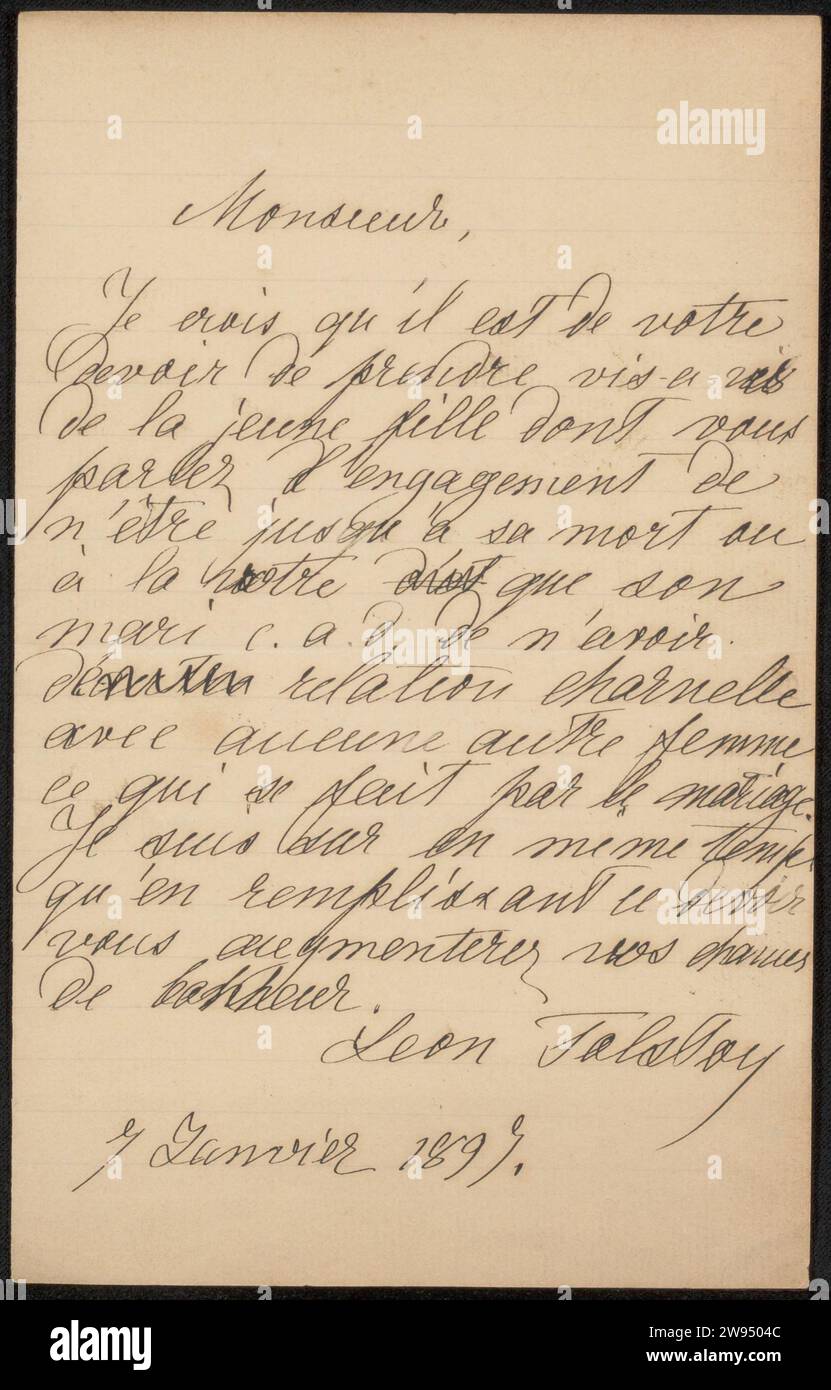 Monsieur,
Je crois qu'il est de votre
devoir de prendre vis-a-vis
de la jeune fille dont vous
parlez d'engagement de
n'être jusqu'à sa mort ou
à la votre que son
mari c. a. d. de n'avoir
de relation charnelle
avec aucune autre femme
ce qui se fait par le mariage.
Je suis sur en même temps
qu'en remplissant ce devoir
vous augmenterez vos chances
de bonheur.
Leon Tolstoy
7 Janvier 1897.
alamy
alamy
Image ID: 2W9504C
www.alamy.com